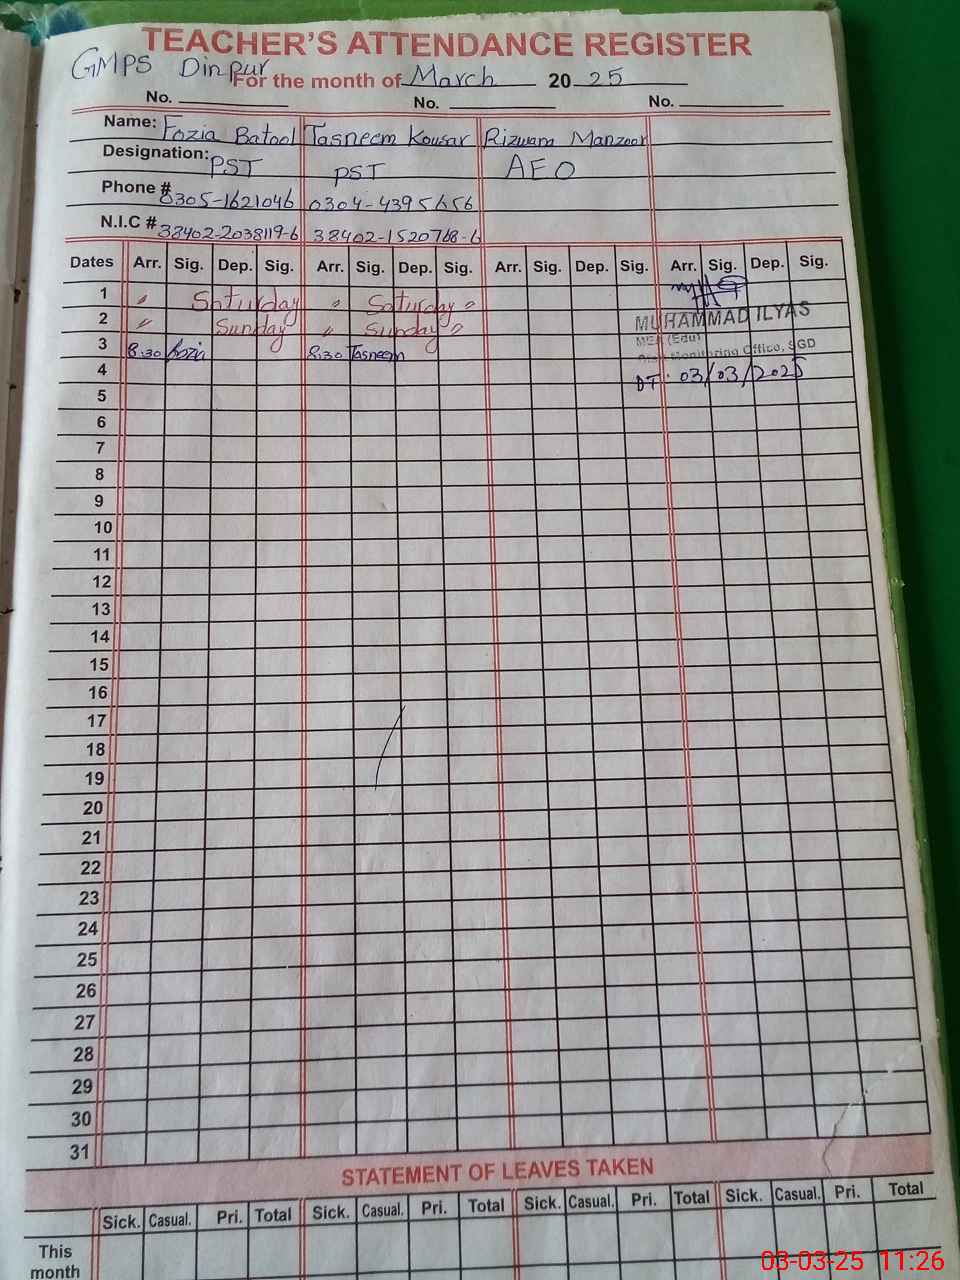 TEACHER'S ATTENDANCE REGISTER
GMPS Dinpur
For the month of March 2025
No. No. No.
Name: Fozia Batool Tasneem Kousar Rizwam Manzoor
Designation: PST PST AEO
Phone # 0305-1621046 0304-4395656
N.I.C # 38402-2038119-6 38402-1520768-6
Dates Arr. Sig. Dep. Sig. Arr. Sig. Dep. Sig. Arr. Sig. Dep. Sig. Arr. Sig. Dep. Sig.
1 " Saturday " Saturday "
2 " Sunday " Sunday " MUHAMMAD ILYAS
MEA (Edu)
3 8:30 Fozia 8:30 Tasneem Monitoring Office, SGD
4 DT: 03/03/2025
5
6
7
8
9
10
11
12
13
14
15
16
17
18
19
20
21
22
23
24
25
26
27
28
29
30
31
STATEMENT OF LEAVES TAKEN
Sick. Casual. Pri. Total Sick. Casual. Pri. Total Sick. Casual. Pri. Total Sick. Casual. Pri. Total
This
month
03-03-25 11:26